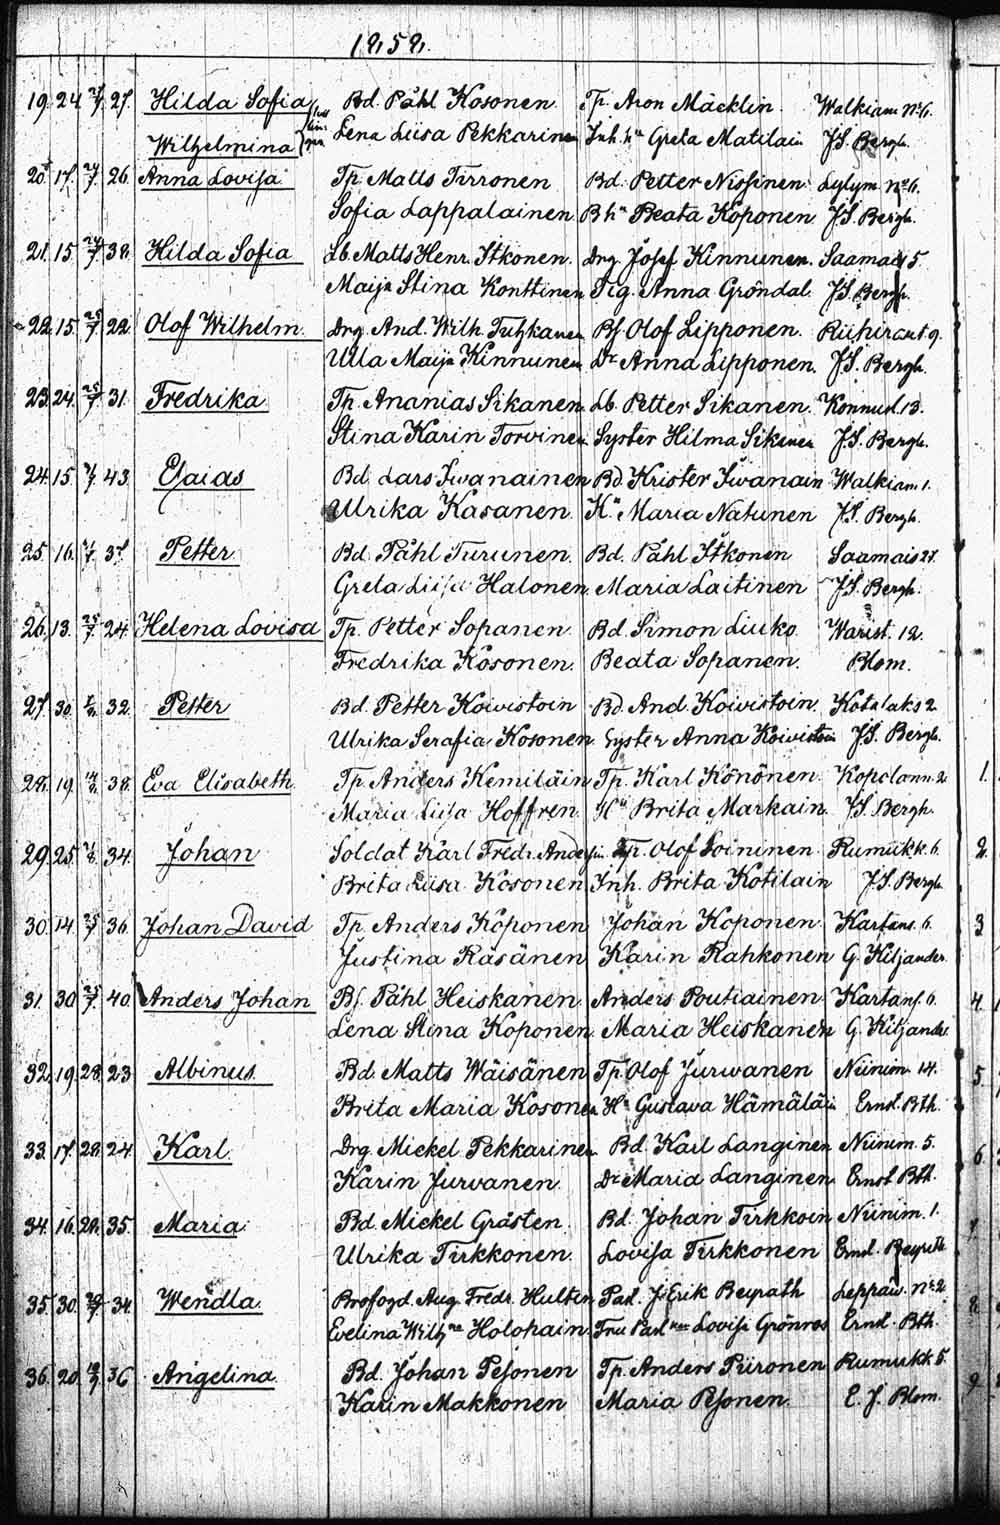 1858.
19. 24 27. Hilda Sofia Bd. Påhl Kosonen Tp. Aron Mäcklin. Walkiam No 6.
Wilhelmina Lena Liisa Pekkarinen Inh. hu Greta Matilain J.S. Bergh.
20. 17. 26. Anna Lovisa Tp. Matts Tirronen Bd. Petter Niosinen Lylym no 6.
Sofia Lappalainen B hu Beata Koponen J.S. Bergh.
21. 15. 38. Hilda Sofia Lb. Matts Henr. Itkonen. Drg. Josef Kinnunen. Saamais 5
Maija Stina Konttinen Pig. Anna Gröndal. J.S. Bergh.
22. 15. 25/7 22. Olof Wilhelm. Drg. And. Wilh. Bf Olof Lipponen. 9.
Ulla Maija Kinnunen Dr Anna Lipponen. J.S. Bergh.
23. 24. 25/7 31. Fredrika Tp. Ananias Sikanen. Lb. Petter Sikanen. Konnusl. 13.
Stina Karin Torvinen Syster Hilma Sikanen J.S. Bergh.
24. 15. 43. Esaias Bd Lars Iwanainen Bd Krister Iwanain Walkiam 1.
Ulrika Kasanen. Hu Maria Natunen J.S. Bergh.
25. 16. 37 Petter Bd. Påhl Turunen. Bd. Påhl Itkonen Saamais 27.
Greta Liisa Halonen Maria Laitinen J.S. Bergh.
26. 13. 25/7 24. Helena Lovisa Tp. Petter Sopanen Bd. Simon Liuko. Warist. 12.
Fredrika Kosonen. Beata Sopanen. Blom.
27. 30. 32. Petter Bd. Petter Koivistoin Bd. And Koivistoin. Kotalaks 2
Ulrika Serafia Kosonen. Syster Anna Koivistoin J.S. Bergh.
28. 19. 38. Eva Elisabeth Tp. Anders Kemiläin Tp. Karl Könönen Kopolann. 2.
Maria Liisa Hoffren. Hu Brita Markain. J.S. Bergh.
29. 25. 34. Johan Soldat Karl Fredr. Tp. Olof Soininen Rumukk. 6.
Brita Liisa Kosonen Inh. Brita Kotilain J.S. Bergh.
30. 14. 25/7 36. Johan David Tp. Anders Koponen Johan Koponen Kartans. 6.
Justina Räsänen Karin Rahkonen G. Kiljander.
31. 30 25/7 40. Anders Johan Bf. Påhl Heiskanen Anders Poutiainen Kartans. 6.
Lena Stina Koponen. Maria Heiskanen G. Kiljander.
32. 19. 28. 23 Albinus. Bd. Matts Wäisänen Tp. Olof Jurwanen Niinim. 14.
Brita Maria Kosonen Hu Gustava Hämäläin Ernst. Bth.
33. 17. 28. 24. Karl. Drg. Mickel Pekkarinen Bd. Karl Langinen Niinim. 5.
Karin Jurvanen. Dr Maria Langinen Ernst Bth.
34. 16. 28. 35. Maria Bd. Mickel Gråsten. Bd. Johan Tirkkoin Niinim. 1.
Ulrika Tirkkonen. Lovisa Tirkkonen Ernst. Beyrath
35. 30. 34. Wendla. Brofogd. Aug. Fredr. Hulten Past. J. Erik Beyrath Leppäw. No 2.
Evelina Wilhna Holopain. Fru Lovisa Grönros Ernst. Bth.
36. 20. 36 Angelina. Bd. Johan Pesonen Tp. Anders Piironen Rumukk 5.
Karin Makkonen Maria Pesonen. E. J. Blom.